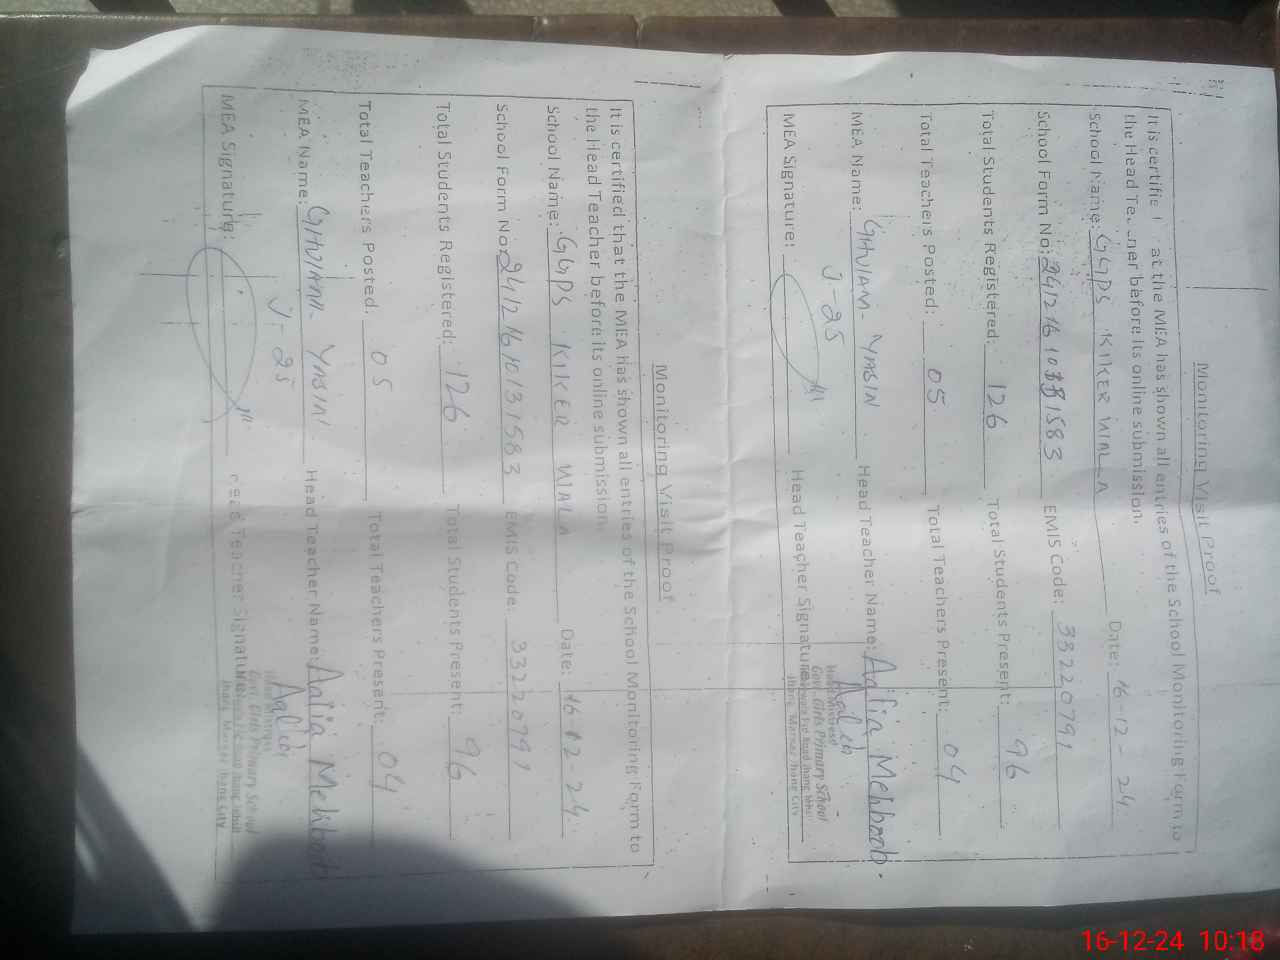 Monitoring Visit Proof
at the MEA has shown all entries of the School Monitoring Form to
the Head before its online submission.
School Name: GGPS KIKER WALA Date: 16-12-24
School Form No: EMIS Code: 33220791
Total Students Registered: 126 Total Students Present: 96
Total Teachers Posted: 05 Total Teachers Present: 04
MEA Name: GHULAM YASIN Head Teacher Name: Aalia Mehboob.
J-25
MEA Signature: Head Teacher Signature
Aalia
Govt. Girls Primary School
Monitoring Visit Proof
It is certified that the MEA has shown all entries of the School Monitoring Form to
the Head Teacher before its online submission.
School Name: GGPS KIKER WALA Date: 16-12-24
School Form No: EMIS Code: 33220791
Total Students Registered: 126 Total Students Present: 96
Total Teachers Posted: 05 Total Teachers Present: 04
MEA Name: GHULAM YASIN Head Teacher Name: Aalia Mehboob
J-25
Aalia
MEA Signature: Head Teacher Signature
Govt. Girls Primary School
16-12-24 10:18